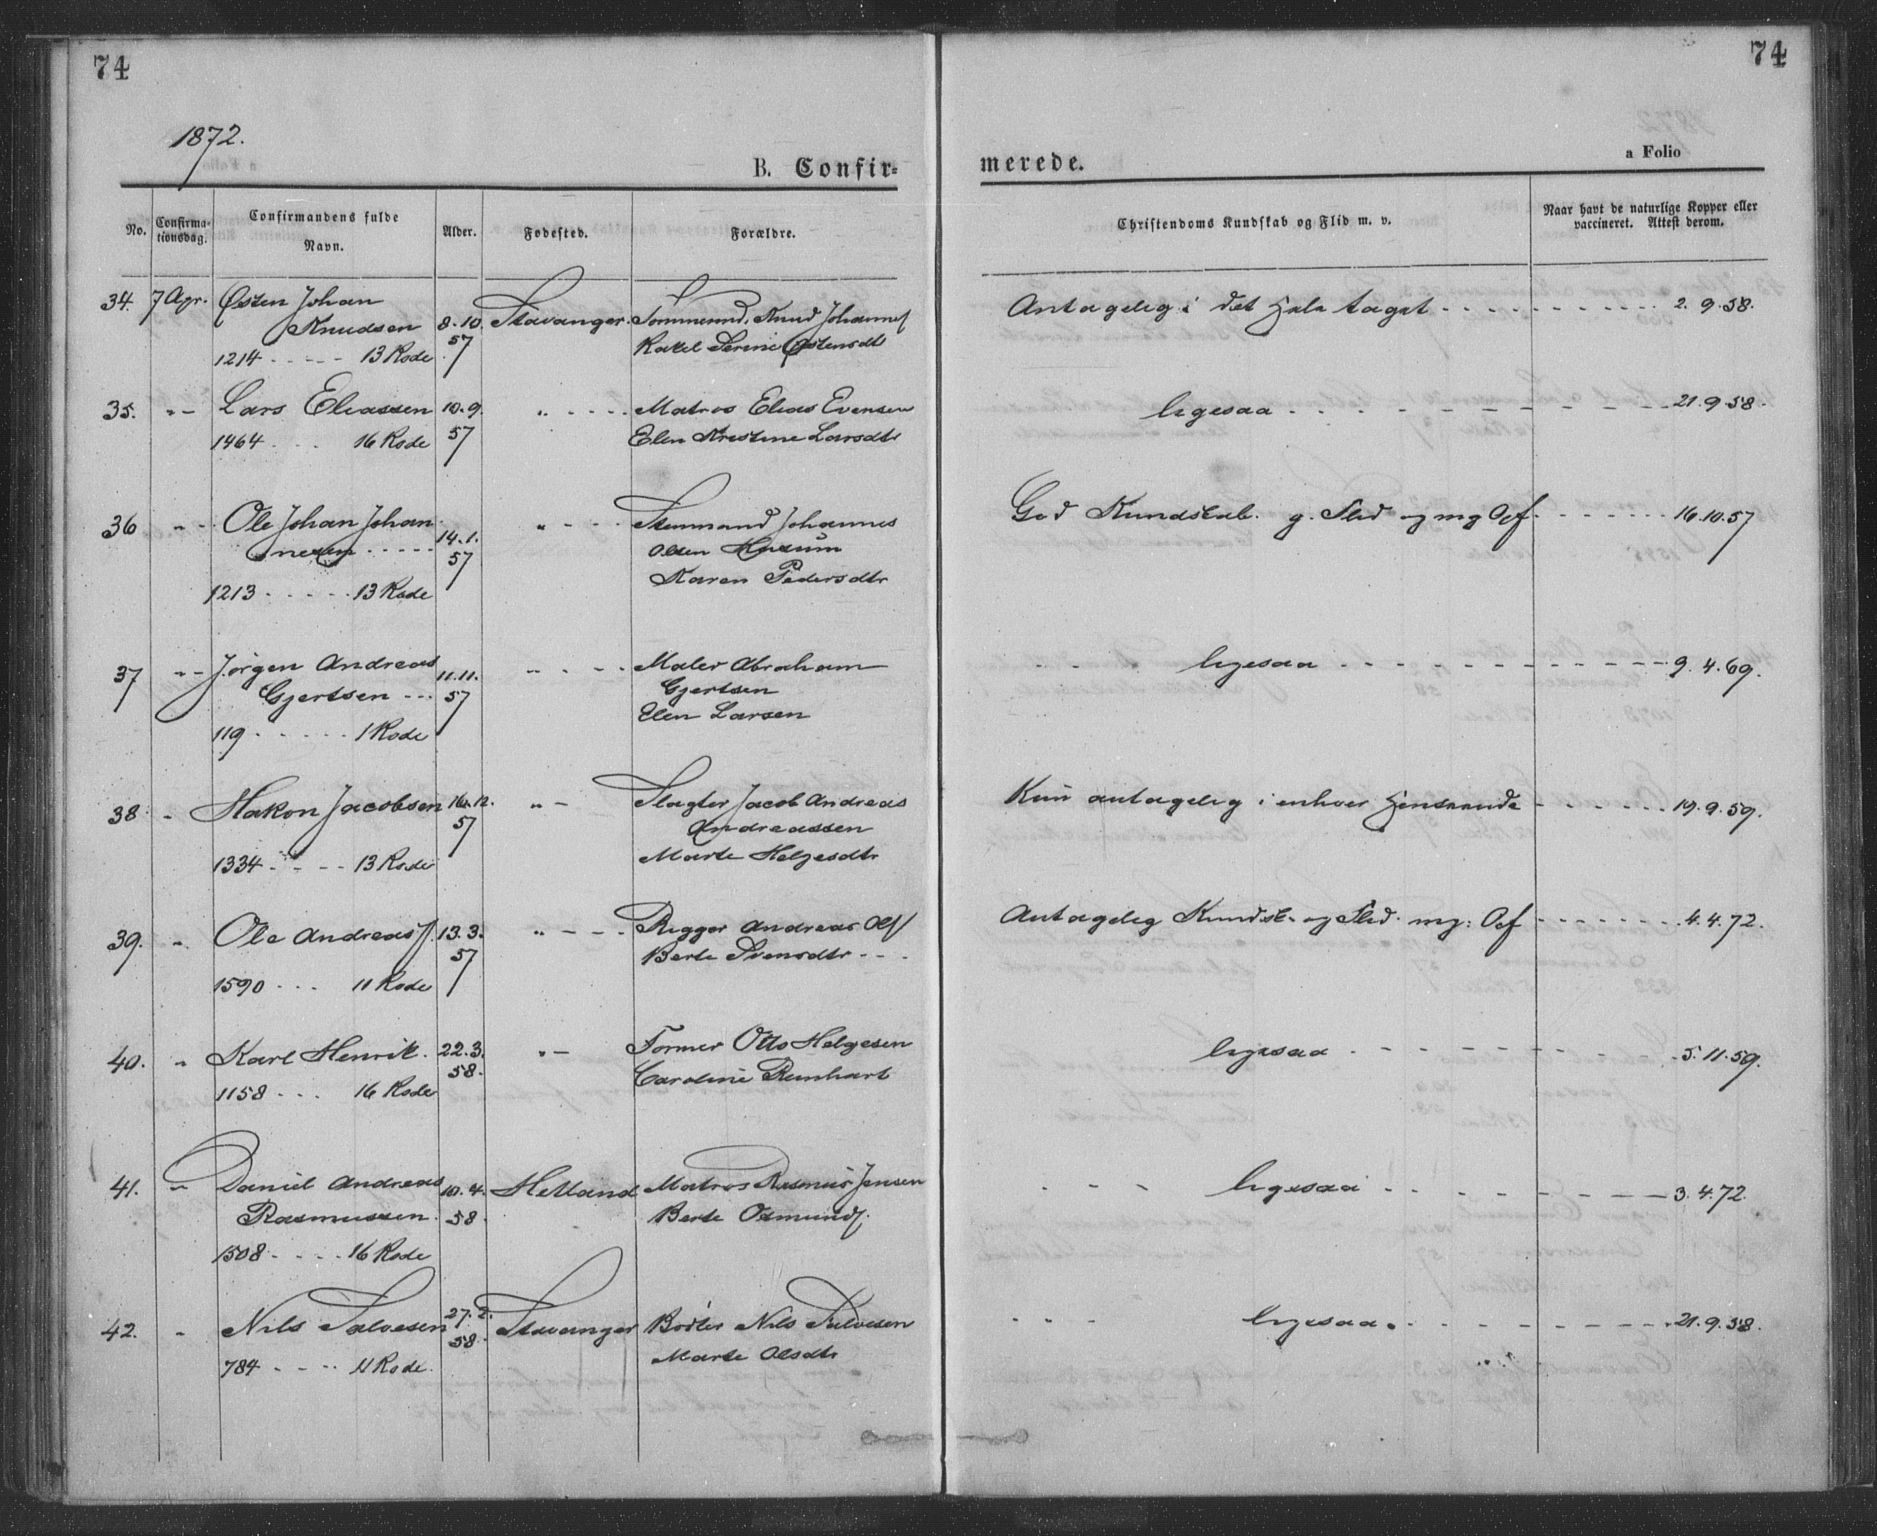 74
74
1872.
B. Confir-
merede.
a Folio
No.
Confirma-
tionsdag.
Confirmandens fulde
Navn.
Alder.
Fødested.
Forældre.
Christendoms Kundskab og Flid m. v.
Naar havt de naturlige Kopper eller
vaccineret. Attest derom.
34. 7 Apr. Østen Johan
Knudsen 8.10. Stavanger. Tømmermd. Knud Johannes
57 Rakel Serine Østensdtr
1214 - - - - 13 Rode
Antagelig i det hele taget - - - - 2. 9. 58.
35. " Lars Eliassen 10.9. " - - - Matros Elias Evensen
1464 - - - 16 Rode 57 Elen Kristine Larsdtr
ligesaa - - - - 21. 9 58.
36 " Ole Johan Johan
nesen - - - - 14.1. " - - - Stenmand Johannes
57 Olsen Husum
Karen Pedersdtr
1213 - - - - 13 Rode
God Kundskab. g. Flid og mg Opf. - - - - 16.10.57
37 " Jørgen Andreas 11.11. " - - - Maler Abraham
Gjertsen - - - 57 Gjertsen
Elen Larsen
119 - - - - 1 Rode
ligesaa - - - - 9. 4. 69.
38 " Hakon Jacobsen 16.12. " - Slagter Jacob Andreas
57 Andreassen
1334 - - - 13 Rode Marte Helgesdtr
Kun antagelig i enhver Henseende - - - - 19. 9. 59.
39. " Ole Andreas 13.3. " - - - Rigger Andreas
57 Berte Svensdtr - - -
1590 - - - 11 Rode
Antagelig Kundsk. og Flid. mg. Opf - - - - 4. 4. 72.
40. " Karl Henrik. 22.3. " - Former Otto Helgesen
58. Caroline Reinhart
1158 - - - 16 Rode
ligesaa - - - - 5. 11. 59.
41. " Daniel Andreas 10.4. Hetland Matros Rasmus Jensen
Rasmussen 58. Berte Osmunds.
1508 - - - - 16 Rode
ligesaa - - - - 3. 4. 72.
42. " Nils Salvesen 27.2. Stavanger Bødker Nils Salvesen
58. Marte Olsdtr
784 - - - - 11 Rode.
ligesaa. - - - - 21. 9. 58.